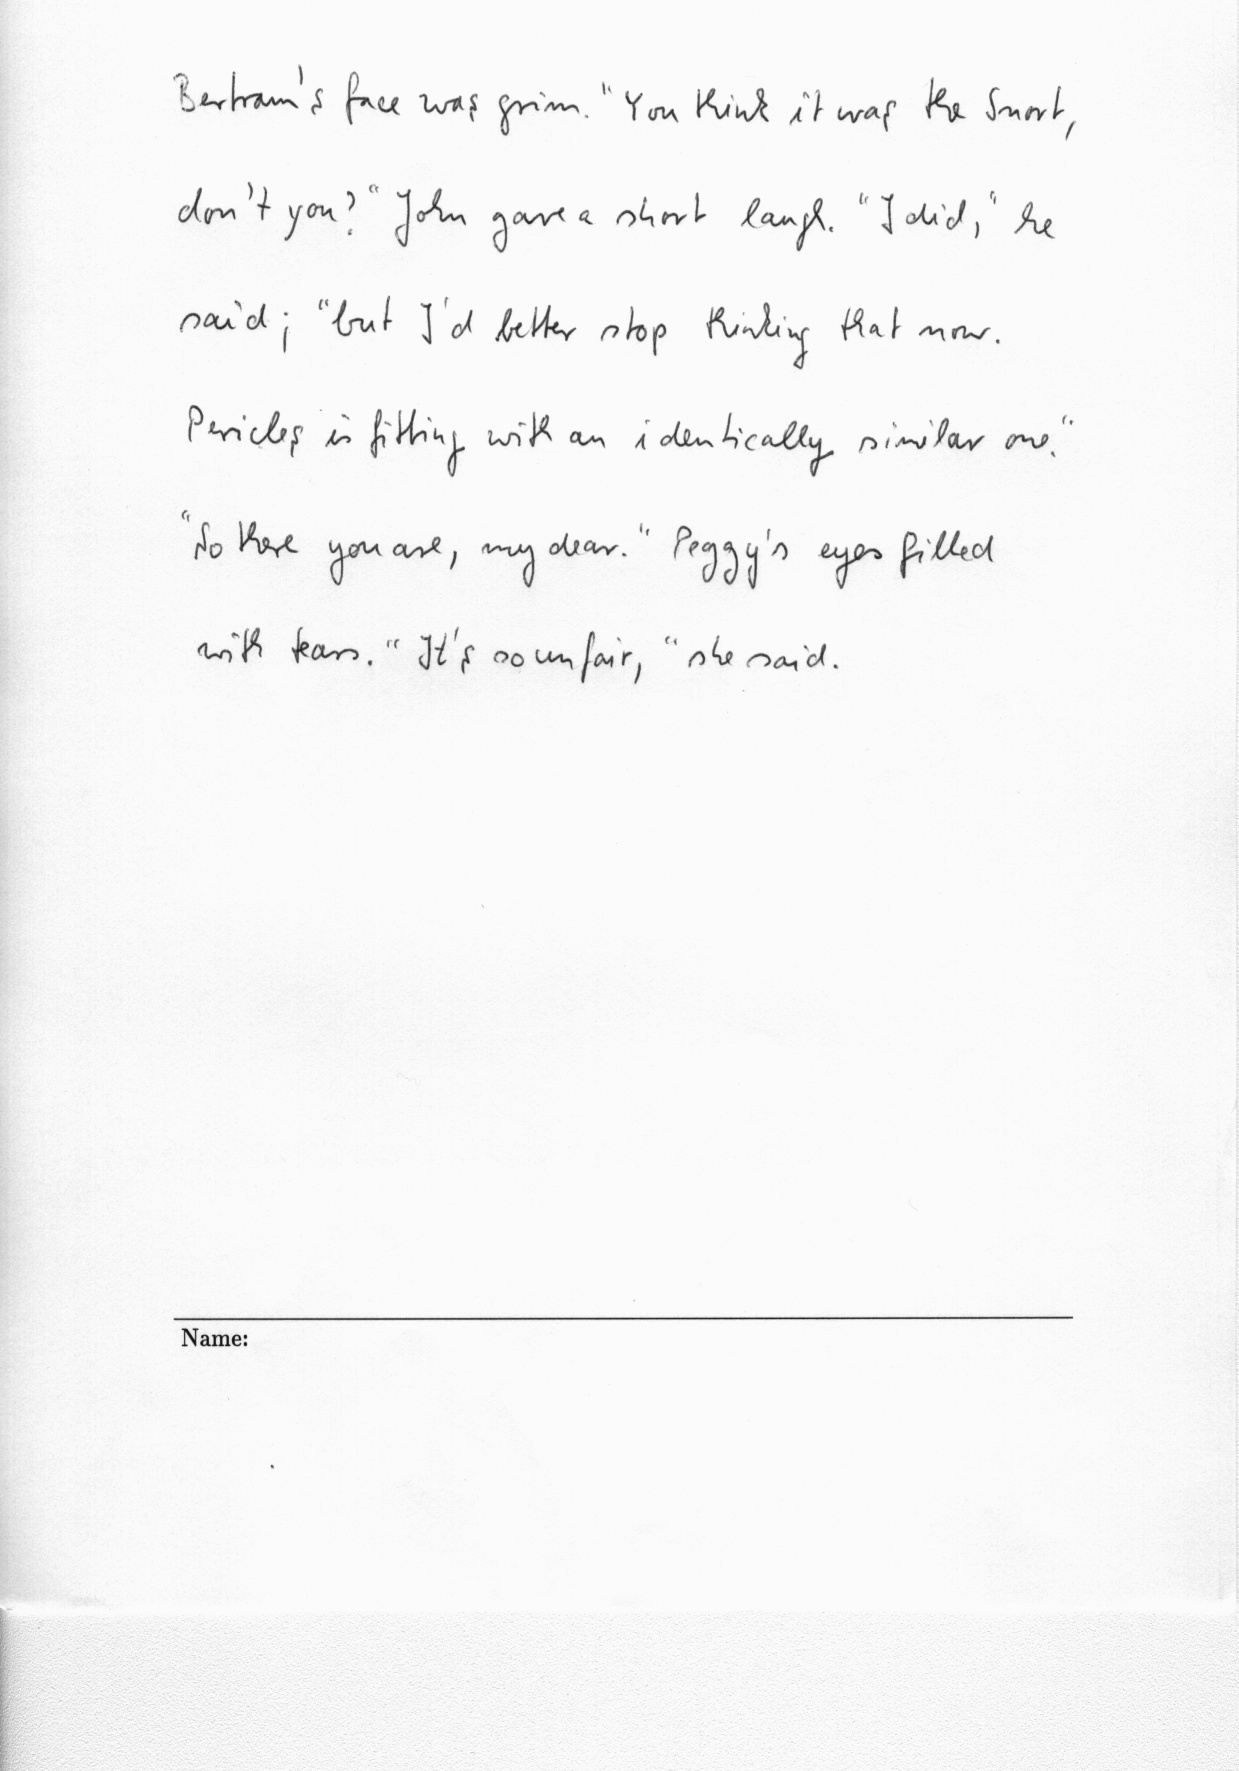 Bertram's face was grim. "You think it was the Snort,
don't you?" John gave a short laugh. "I did," he
said; "but I'd better stop thinking that now.
Pericles is fitting with an identically similar one."
"So there you are, my dear." Peggy's eyes filled
with tears. "It's so unfair," she said.
Name: